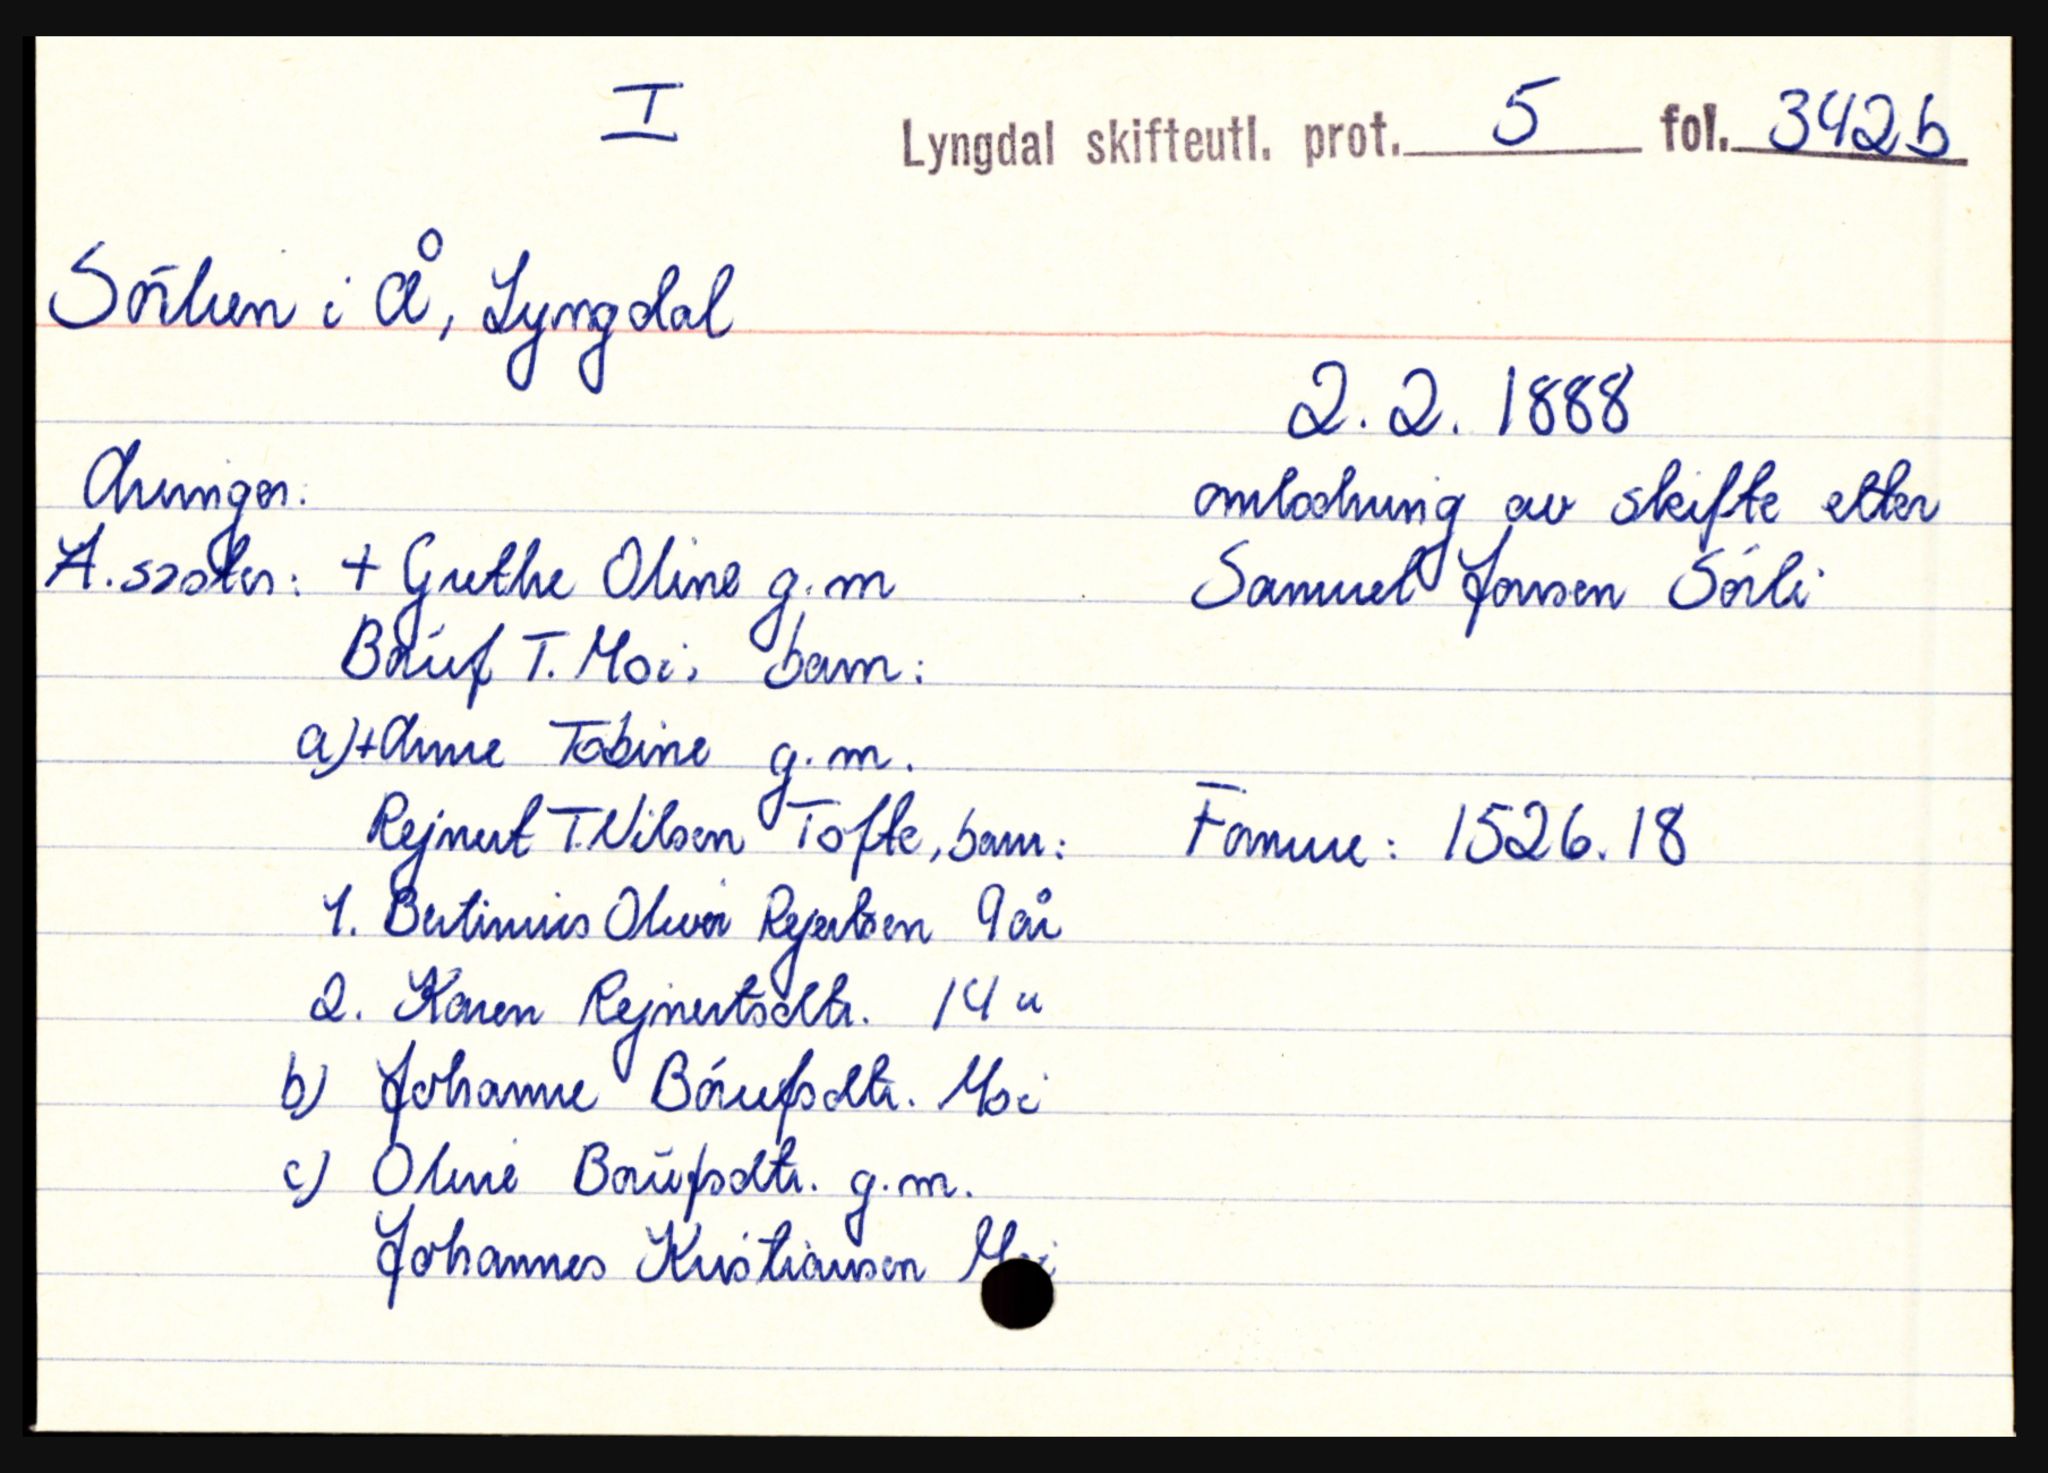 I
Lyngdal skifteutl. prot. 5 fol. 342b
Sörlien i Å, Lyngdal
2.2.1888
Arvinger:
omlodning av skifte etter
A. søster: + Grethe Oline g.m
Samuel Jonsen Sörli
Börüf T. Moi, barn:
a) + Anne Tobine g.m.
Rejnert T. Nilsen Tofte, barn:
Formue: 1526.18
1. Bertinius Oliver Rejertsen 9 år
2. Karen Rejnertsdtr. 14 "
b) Johanne Börufsdtr. Moi
c) Oline Börüfsdtr. g.m.
Johannes Kristiansen Moi